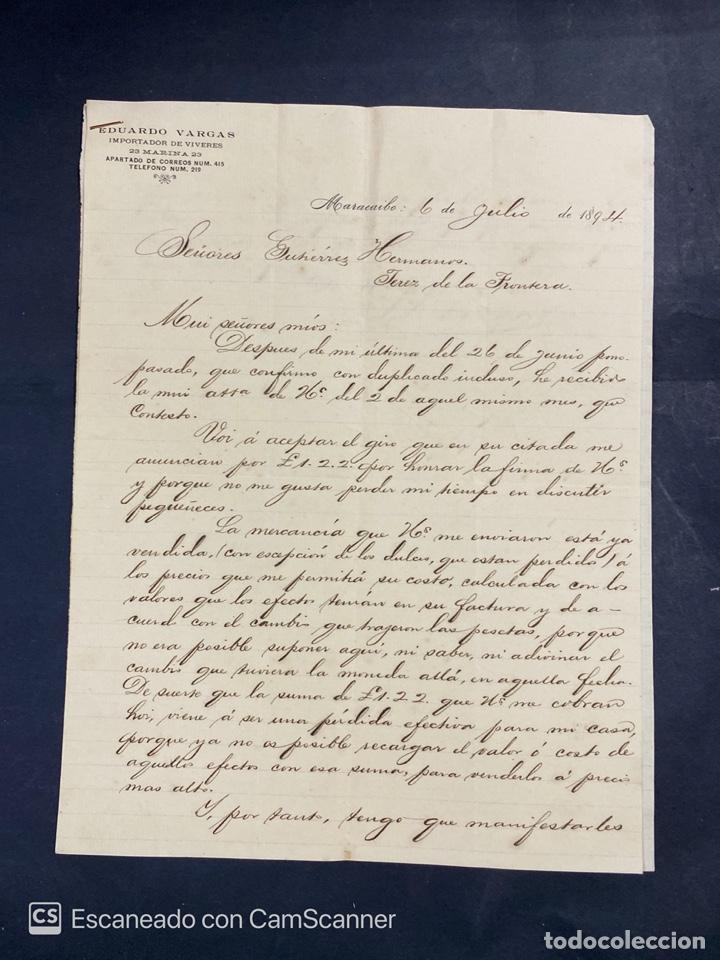 EDUARDO VARGAS
IMPORTADOR DE VIVERES
23 MARINA 23
APARTADO DE CORREOS NUM. 415
TELEFONO NUM. 219
Maracaibo: 6 de Julio de 1894.
Señores Gutiérrez Hermanos.
Jerez de la Frontera.
Mui señores míos:
Despues de mi última del 26 de Junio ppno-
pasado, que confirmo con duplicado incluso, he recibido
la mui atta de Us. del 2 de aquel mismo mes, que
contesto.
Voi á aceptar el giro que en su citada me
anuncian por £1.2.2. por honrar la firma de Us.
y porque no me gusta perder mi tiempo en discutir
pequeñeces.
La mercancía que Us. me enviaron está ya
vendida, (con escepción de los dulces, que estan perdidos) á
los precios que me permitiá su costo, calculada con los
valores que los efectos tenían en su factura y de a-
cuerdo con el cambio que trajeron las pesetas, porque
no era posible suponer aquí, ni saber, ni adivinar el
cambio que tuviera la moneda allá, en aquella fecha.
De suerte que la suma de £1.2.2. que Us. me cobran
hoi, viene á ser una pérdida efectiva para mi casa,
porque ya no es posible recargar el valor ó costo de
aquellos efectos con esa suma, para venderlos á precio
mas alto.
Y, por tanto, tengo que manifestarles
CS Escaneado con CamScanner
todocoleccion